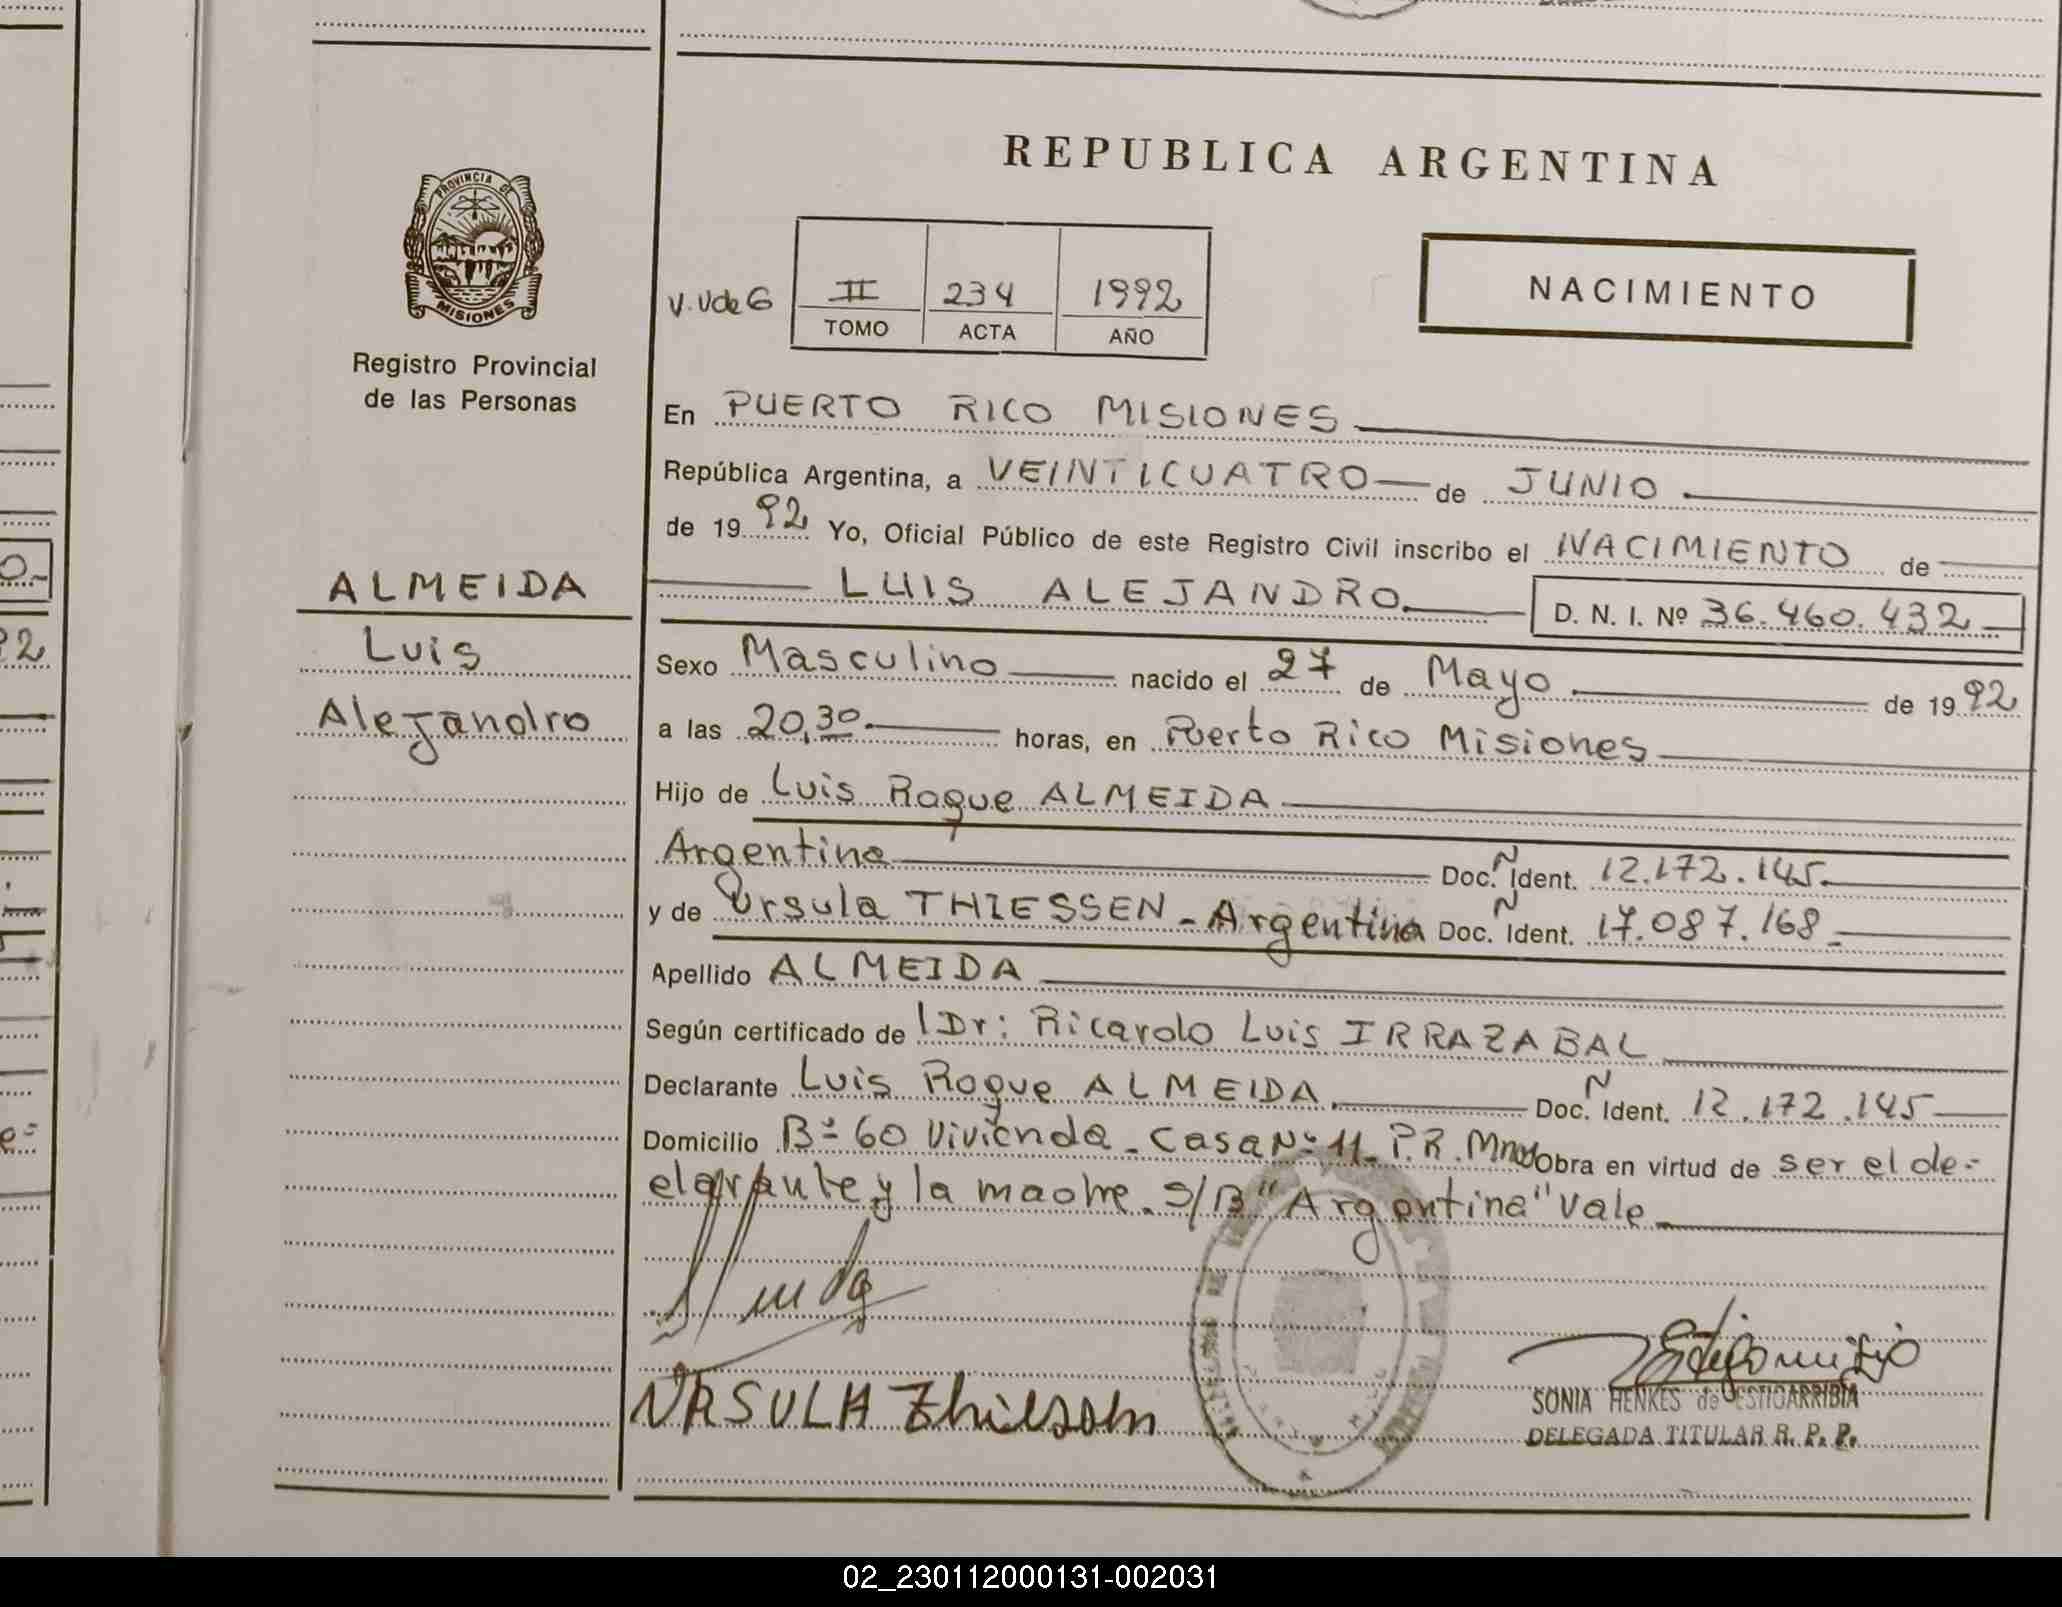 REPUBLICA ARGENTINA
PROVINCIA DE
MISIONES
Registro Provincial
de las Personas
V. V de G
II 234 1992
TOMO ACTA AÑO
NACIMIENTO
En PUERTO RICO MISIONES
República Argentina, a VEINTICUATRO de JUNIO
de 1992 Yo, Oficial Público de este Registro Civil inscribo el NACIMIENTO de
ALMEIDA
Luis
Alejandro
LUIS ALEJANDRO D. N. I. Nº 36.460.432
Sexo Masculino nacido el 27 de Mayo de 1992
a las 20,30 horas, en Puerto Rico Misiones
Hijo de Luis Roque ALMEIDA
Argentina Doc. Ident. 12.172.145
y de Ursula THIESSEN - Argentina Doc. Ident. 17.087.168
Apellido ALMEIDA
Según certificado de Dr: Ricardo Luis IRRAZABAL
Declarante Luis Roque ALMEIDA Doc. Ident. 12.172.145
Domicilio Bº 60 Vivienda - Casa Nº 11 - P.R. Mnes Obra en virtud de ser el de-
clarante y la madre. S/B "Argentina" Vale
URSULA
SONIA HENKES de ESTIGARRIBIA
DELEGADA TITULAR R. P. P.
02_230112000131-002031